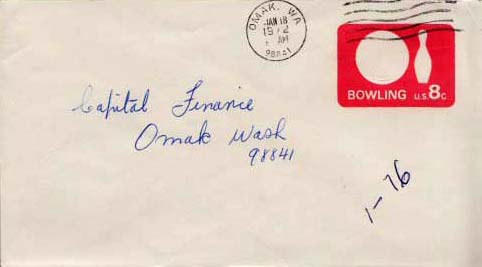 OMAK, WA
JAN 18
1972
AM
98841
BOWLING U.S. 8c
Capital Finance
Omak Wash
98841
1-76